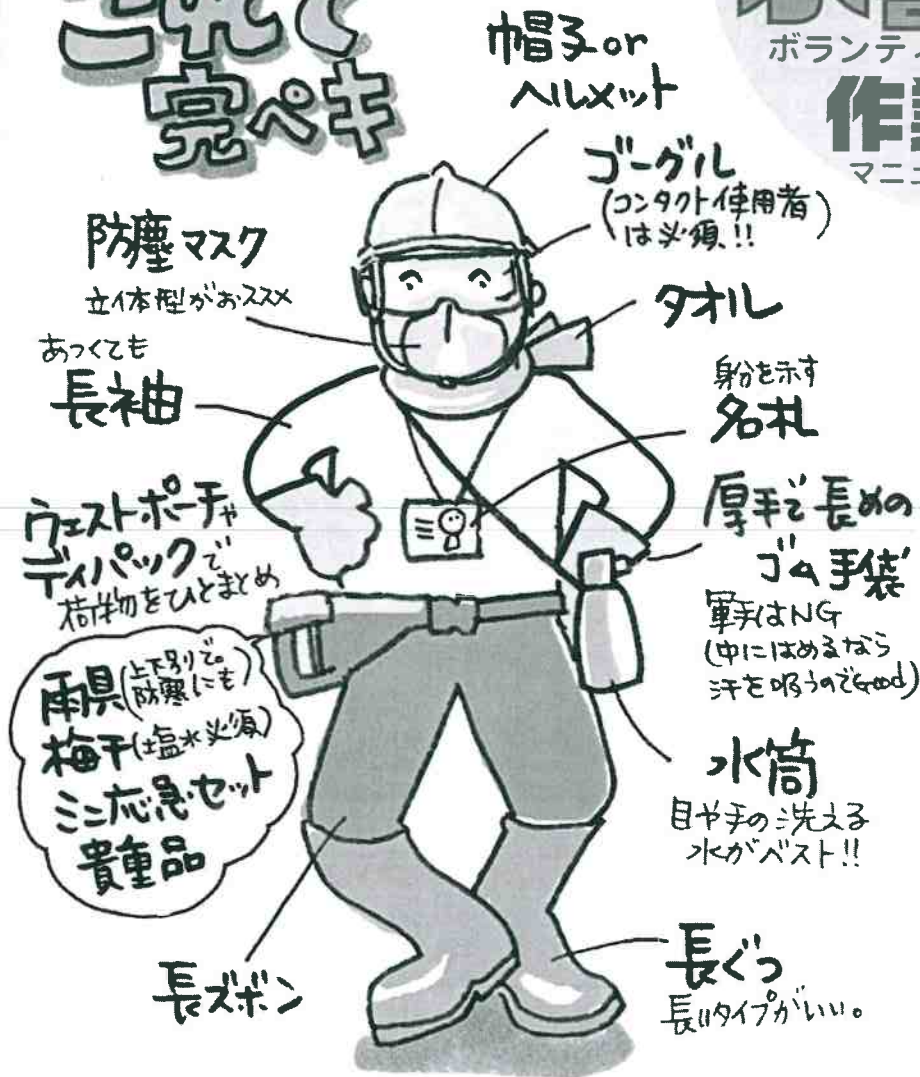 これで
完ペキ
ボランティ
マニュ
帽子or
ヘルメット
ゴーグル
(コンタクト使用者
は必須!!)
防塵マスク
立体型がおススメ
タオル
あつくても
長袖
身分を示す
名札
ウェストポーチや
ディパックで
荷物をひとまとめ
厚手で長めの
ゴム手袋
軍手はNG
(中にはめるなら
汗を吸うのでGood)
雨具(上下別りで。
防寒にも)
梅干(塩水必須)
ミニ応急セット
貴重品
水筒
目や手の洗える
水がベスト!!
長ズボン
長ぐつ
長いタイプがいい。